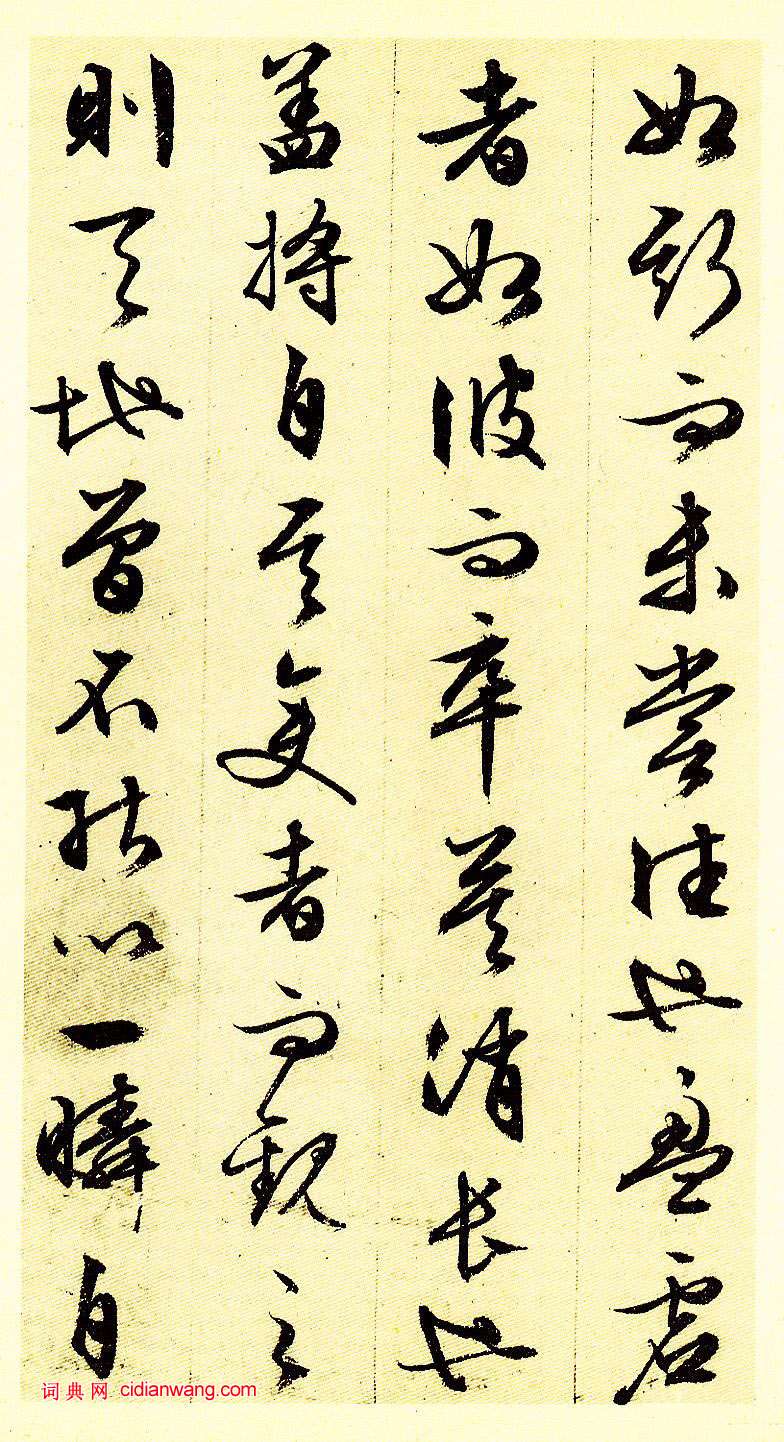 如斯而未嘗往也盈虛
者如彼而卒莫消長也
蓋將自其變者而觀之
則天地曾不能以一瞬自
词典网 cidianwang.com